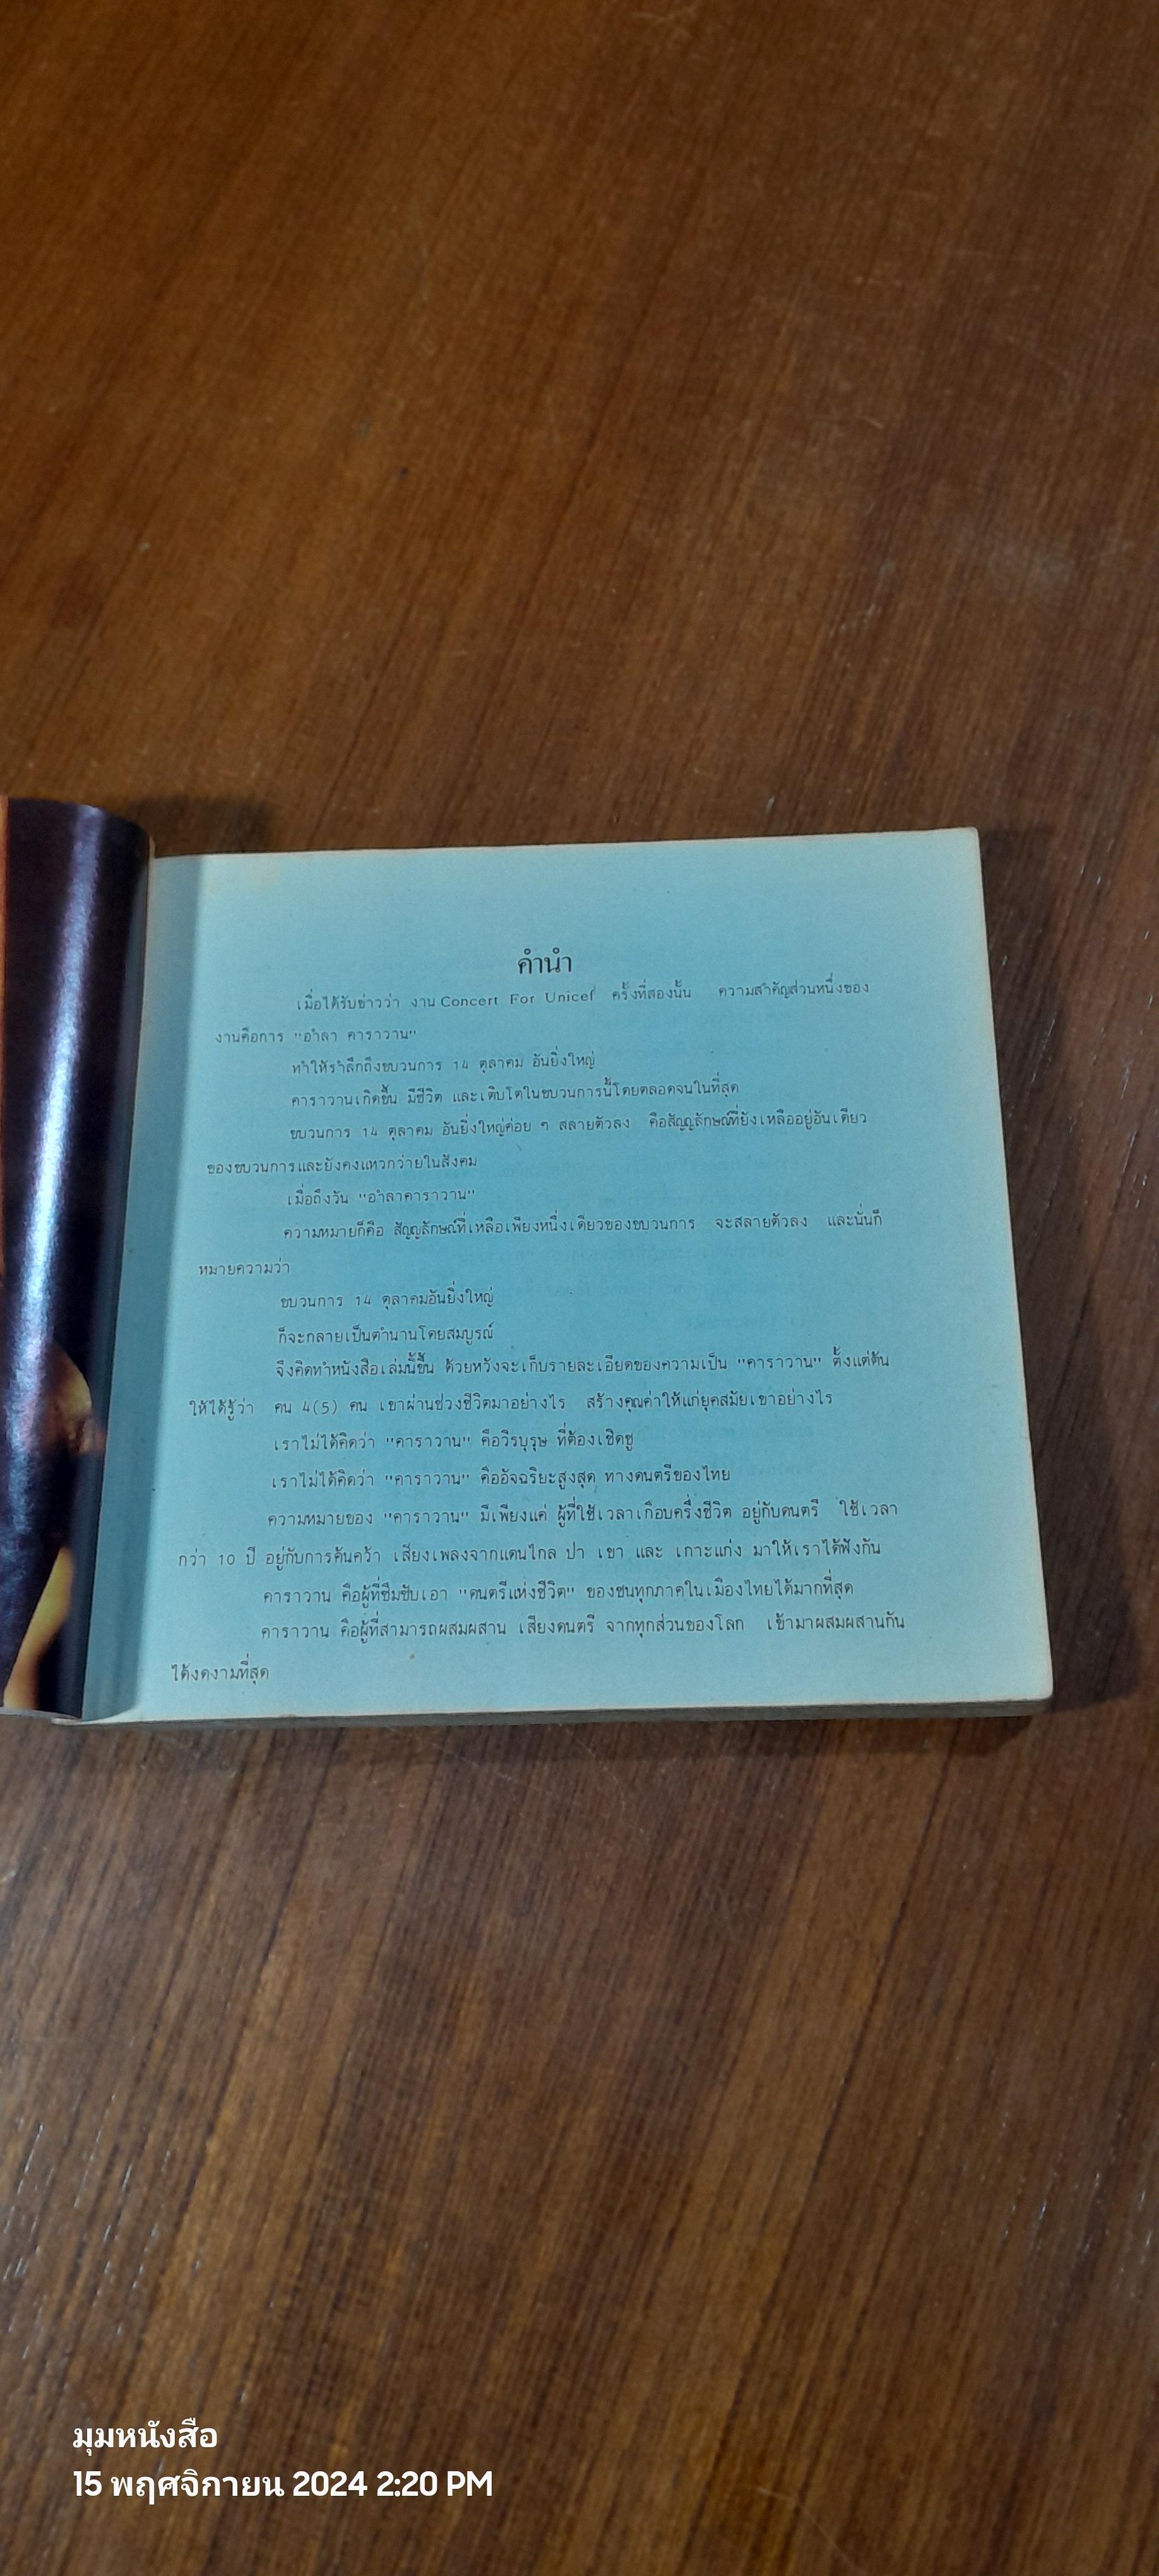 คำนำ
เมื่อได้รับข่าวว่า งาน Concert For Unicef ครั้งที่สองนั้น ความสำคัญส่วนหนึ่งของ
งานคือการ "อำลา คาราวาน"
ทำให้รำลึกถึงขบวนการ 14 ตุลาคม อันยิ่งใหญ่
คาราวานเกิดขึ้น มีชีวิต และเติบโตในขบวนการนี้โดยตลอดจนในที่สุด
ขบวนการ 14 ตุลาคม อันยิ่งใหญ่ค่อย ๆ สลายตัวลง คือสัญญลักษณ์ที่ยังเหลืออยู่อันเดียว
ของขบวนการและยังคงแหวกว่ายในสังคม
เมื่อถึงวัน "อำลาคาราวาน"
ความหมายก็คือ สัญญลักษณ์ที่เหลือเพียงหนึ่งเดียวของขบวนการ จะสลายตัวลง และนั่นก็
หมายความว่า
ขบวนการ 14 ตุลาคมอันยิ่งใหญ่
ก็จะกลายเป็นตำนานโดยสมบูรณ์
จึงคิดทำหนังสือเล่มนี้ขึ้น ด้วยหวังจะเก็บรายละเอียดของความเป็น "คาราวาน" ตั้งแต่ต้น
ให้ได้รู้ว่า คน 4(5) คน เขาผ่านช่วงชีวิตมาอย่างไร สร้างคุณค่าให้แก่ยุคสมัยเขาอย่างไร
เราไม่ได้คิดว่า "คาราวาน" คือวีรบุรุษ ที่ต้องเชิดชู
เราไม่ได้คิดว่า "คาราวาน" คืออัจฉริยะสูงสุด ทางดนตรีของไทย
ความหมายของ "คาราวาน" มีเพียงแค่ ผู้ที่ใช้เวลาเกือบครึ่งชีวิต อยู่กับดนตรี ใช้เวลา
กว่า 10 ปี อยู่กับการค้นคว้า เสียงเพลงจากแดนไกล ป่า เขา และ เกาะแก่ง มาให้เราได้ฟังกัน
คาราวาน คือผู้ที่ซึมซับเอา "ดนตรีแห่งชีวิต" ของชนทุกภาคในเมืองไทยได้มากที่สุด
คาราวาน คือผู้ที่สามารถผสมผสาน เสียงดนตรี จากทุกส่วนของโลก เข้ามาผสมผสานกัน
ได้งดงามที่สุด
มุมหนังสือ
15 พฤศจิกายน 2024 2:20 PM